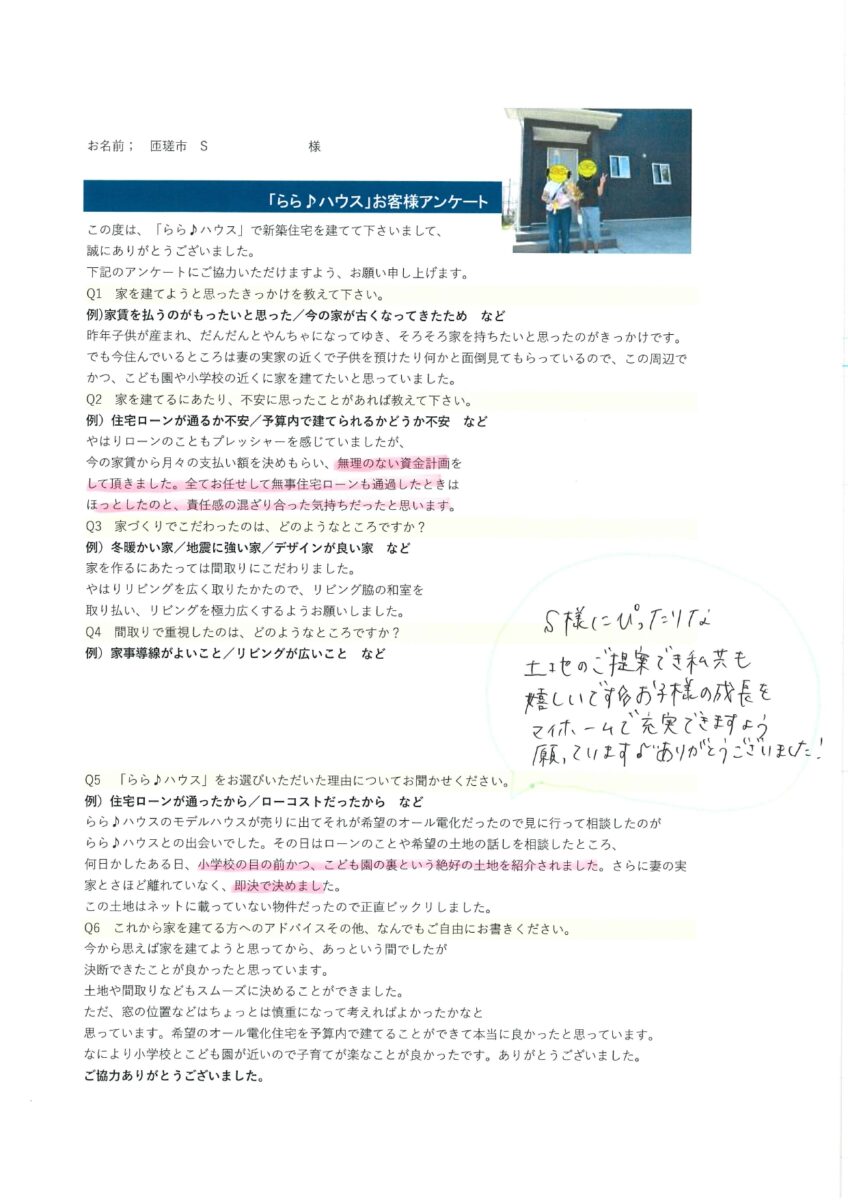 お名前； 匝瑳市 S 様
「らら♪ハウス」お客様アンケート
この度は、「らら♪ハウス」で新築住宅を建てて下さいまして、
誠にありがとうございました。
下記のアンケートにご協力いただけますよう、お願い申し上げます。
Q1 家を建てようと思ったきっかけを教えて下さい。
例)家賃を払うのがもったいと思った／今の家が古くなってきたため など
昨年子供が産まれ、だんだんとやんちゃになってゆき、そろそろ家を持ちたいと思ったのがきっかけです。
でも今住んでいるところは妻の実家の近くで子供を預けたり何かと面倒見てもらっているので、この周辺で
かつ、こども園や小学校の近くに家を建てたいと思っていました。
Q2 家を建てるにあたり、不安に思ったことがあれば教えて下さい。
例）住宅ローンが通るか不安／予算内で建てられるかどうか不安 など
やはりローンのこともプレッシャーを感じていましたが、
今の家賃から月々の支払い額を決めもらい、無理のない資金計画を
して頂きました。全てお任せして無事住宅ローンも通過したときは
ほっとしたのと、責任感の混ざり合った気持ちだったと思います。
Q3 家づくりでこだわったのは、どのようなところですか？
例）冬暖かい家／地震に強い家／デザインが良い家 など
家を作るにあたっては間取りにこだわりました。
やはりリビングを広く取りたかたので、リビング脇の和室を
取り払い、リビングを極力広くするようお願いしました。
Q4 間取りで重視したのは、どのようなところですか？
例）家事導線がよいこと／リビングが広いこと など
S様にぴったりな
土地のご提案でき私共も
嬉しいです お子様の成長を
マイホームで充実できますよう
願っています♪ありがとうございました！
Q5 「らら♪ハウス」をお選びいただいた理由についてお聞かせください。
例）住宅ローンが通ったから／ローコストだったから など
らら♪ハウスのモデルハウスが売りに出てそれが希望のオール電化だったので見に行って相談したのが
らら♪ハウスとの出会いでした。その日はローンのことや希望の土地の話しを相談したところ、
何日かしたある日、小学校の目の前かつ、こども園の裏という絶好の土地を紹介されました。さらに妻の実
家とさほど離れていなく、即決で決めました。
この土地はネットに載っていない物件だったので正直ビックリしました。
Q6 これから家を建てる方へのアドバイスその他、なんでもご自由にお書きください。
今から思えば家を建てようと思ってから、あっという間でしたが
決断できたことが良かったと思っています。
土地や間取りなどもスムーズに決めることができました。
ただ、窓の位置などはちょっとは慎重になって考えればよかったかなと
思っています。希望のオール電化住宅を予算内で建てることができて本当に良かったと思っています。
なにより小学校とこども園が近いので子育てが楽なことが良かったです。ありがとうございました。
ご協力ありがとうございました。